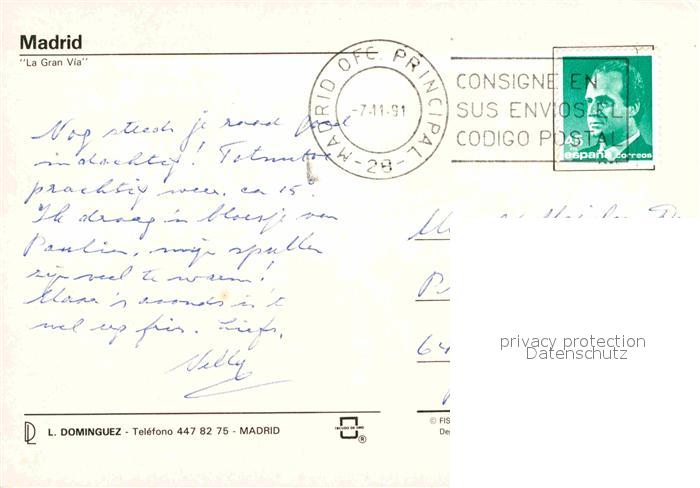 Madrid
"La Gran Vía"
MADRID OFC. PRINCIPAL
-7-11-91
-28-
CONSIGNE EN
SUS ENVIOS EL
CODIGO POSTAL
45
españa correos
Nog steeds je raad
indachtig! Totnutoe
prachtig weer, ca 15°
Ik draag 'n bloesje van
Paulien, mijn spullen
zijn veel te warm!
Maar 's avonds is 't
wel erg fris. Liefs,
Nelly
64
privacy protection
Datenschutz
L. DOMINGUEZ - Teléfono 447 82 75 - MADRID
®
© FIS
De